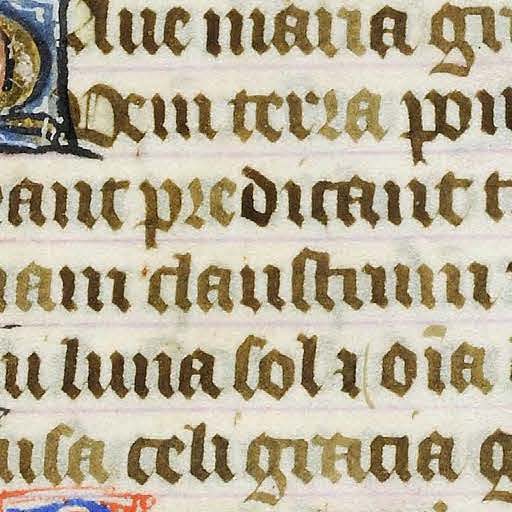 Aue maria gr
Vem terra pon
ant predicant t
nam claustrum
ui luna sol ⁊ oīa
usa celi gracia g